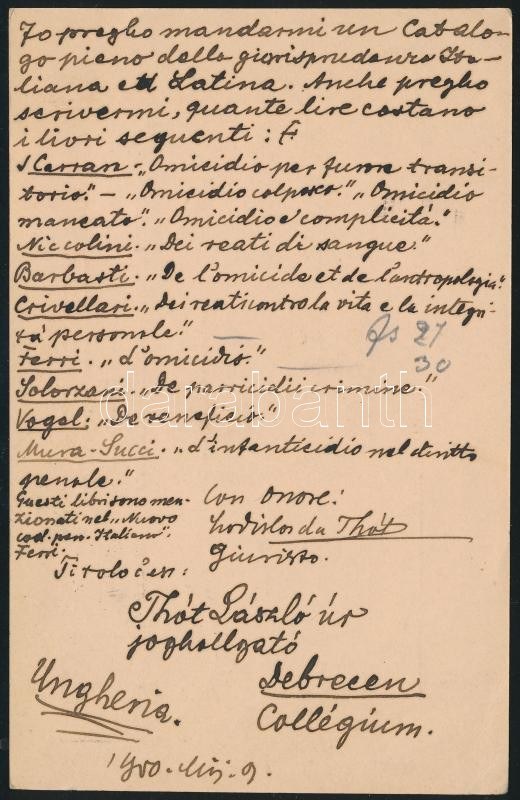 Io pregho mandarmi un Catalo-
go pieno della giurisprudenza Ita-
liana et Latina. Anche pregho
scrivermi, quante lire costano
i livri sequenti:
Carran - „Omicidio per furore transi-
torio." - „Omicidio colposo." „Omicidio
mancato". „Omicidio e complicitá."
Niccolini. „Dei reati di sangue."
Barbasti. „De l'omicide et de l'antropologia".
Crivellari. „Dei reati contro la vita e la integri-
tá personale."
Ferri. „d'omicidio."
Solorzani. „De parricidii crimine."
Vogel. „De veneficio."
Mura-Succi. „d'infanticidio nel diritto
penale."
Questi libri sono men-
zionati nel „Nuovo
cod. pen. Italiano".
Ferri.
27
30
Con onore:
Ladislas da Thót
Giuristo.
Titolo
Thót László úr
joghallgató
Debrecen
Collégium.
Ungheria.
1900. 9.
darabanth